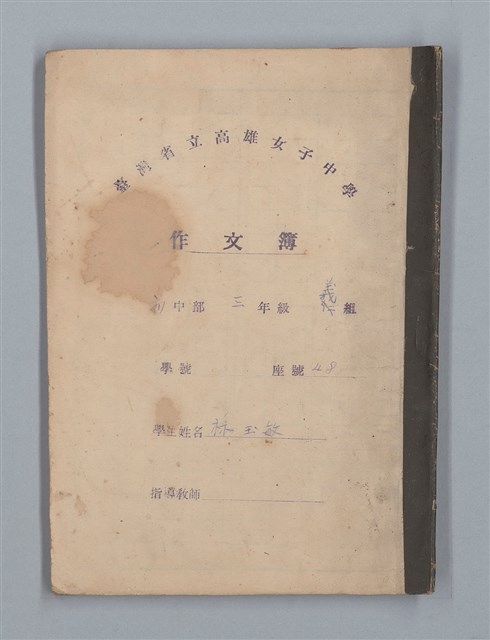 臺灣省立高雄女子中學
作文簿
初中部 三 年級 義 組
學號 座號 48
學生姓名 林玉敏
指導教師